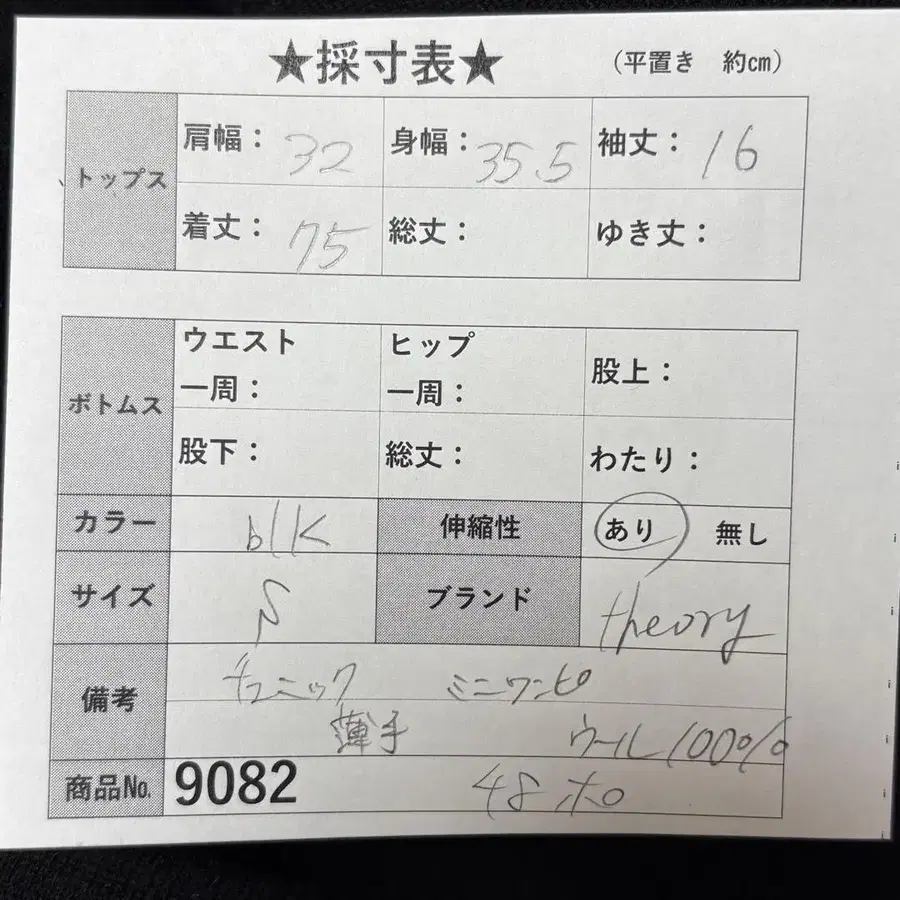 ★採寸表★ (平置き 約cm)
トップス
肩幅： 32 身幅： 35.5 袖丈： 16
着丈： 75 総丈： ゆき丈：
ボトムス
ウエスト一周： ヒップ一周： 股上：
股下： 総丈： わたり：
カラー blk 伸縮性 あり 無し
サイズ S ブランド theory
備考 チュニック ミニワンピ
薄手 ウール100%
商品No. 9082 48ホロ